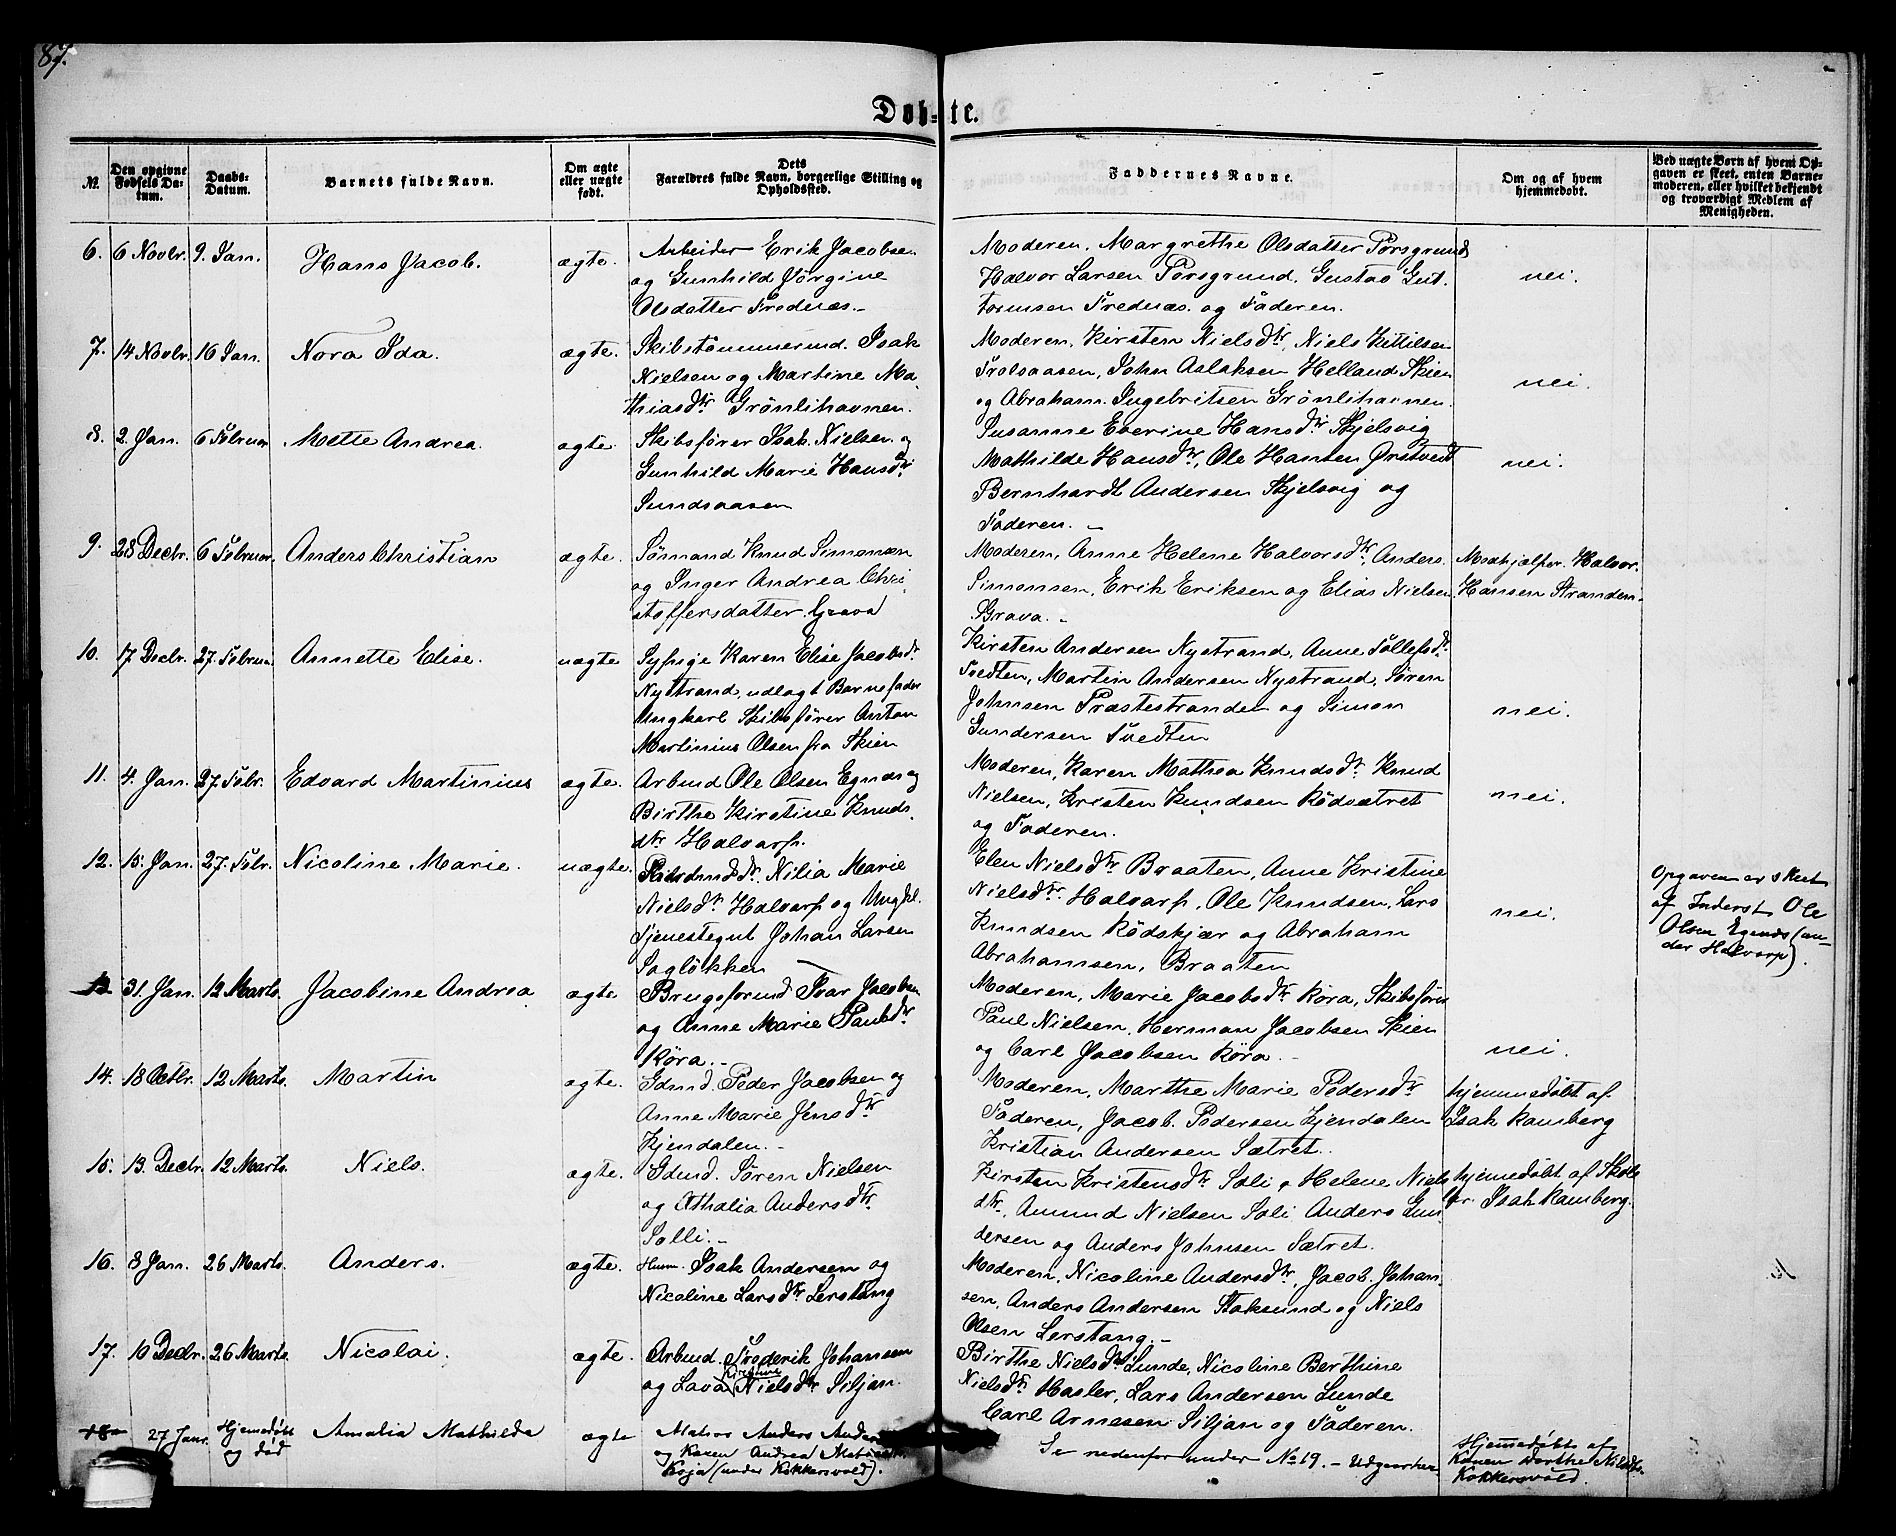 87.
Døbte.
No.
Den opgivne Fødsels Datum.
Daabs-Datum.
Barnets fulde Navn.
Om ægte eller uægte født.
Dets Forældres fulde Navn, borgerlige Stilling og Opholdssted.
Faddernes Navne.
Om og af hvem hjemmedøbt.
Ved uægte Børn af hvem Opgaven er skeet, enten Barnemoderen, eller hvilket bekjendt og troværdigt Medlem af Menigheden.
6. 6 Novbr. 9. Jan. Hans Jacob. ægte.
Arbeider Erik Jacobsen
og Gunhild Jørgine
Olsdatter Frednæs.-
Moderen, Margrethe Olsdatter Porsgrund
Halvor Larsen Porsgrund, Gustav Gut-
tormsen Frednæs. og Faderen.
nei.
7. 14 Novbr. 16 Jan. Nora Ida. ægte.
Skibstømmermd. Isak
Nielsen og Martine Ma-
thiasdtr Grönlihavnen.
Moderen, Kirsten Nielsdtr, Niels Kittilsen
Trolsaasen, John Aslaksen Helland Skien
og Abraham Ingebritsen Grönlihavnen.
nei.
8. 2. Jan. 6 Februar Mette Andrea. ægte.
Skibsfører Isak Nielsen og
Gunhild Marie Hansdtr
Sundsaasen
Susanne Everine Hansdtr Skjelsvig
Mathilde Hansdtr, Ole Hansen Ørstvedt
Bernhardt Andersen Skjelsvig og
Faderen. -
nei.
9. 28 Decbr. 6 Februar. Anders Christian ægte.
Sømand Knud Simonsen
og Inger Andrea Chri-
stoffersdatter Grava
Moderen, Anne Helene Halvorsdtr, Anders
Simonsen, Erik Eriksen og Elias Nielsen
Grava. -
Modhjælper Halvor
Hansen Stranden.
10. 17 Decbr. 27. Februar Annette Elise. uægte
Sypige Karen Elise Jacobsdr.
Nystrand, udlagt Barnefader
Ungkarl Skibsfører Anton
Martinius Olsen fra Skien
Kirsten Andersen Nystrand, Anne Tollefsdr.
Tvedten, Martin Andersen Nystrand, Søren
Johnsen Præstestranden og Simon
Gundersen Tvedten
nei.
11. 4. Jan. 27. Febr. Edvard Martinius ægte.
Arbmd Ole Olsen Egnds og
Birthe Kirstine Knuds-
dtr Halvarp.
Moderen, Karen Mathea Knudsdtr. Knud
Nielsen, Kristen Knudsen Rödsætret
og Faderen.
nei.
12. 15. Jan. 27. Febr. Nicoline Marie. uægte.
Nilia Marie
Nielsdtr. Halvarp og Ungkl.
Tjenestegut Johan Larsen
Saglökken
Elen Nielsdtr Braaten, Anne Kristine
Nielsdtr. Halvarp, Ole Knudsen, Lars
Knudsen Rödskjær og Abraham
Abrahamsen, Braaten
nei.
Opgaven er skeet
af Inderst Ole
Olsen Egnds (un-
der Halvarp).
13 31. Jan. 12 Marts. Jacobine Andrea ægte
Brugsformd Ivar Jacobsen
og Anne Marie Paulsdtr.
Köra. -
Moderen, Marie Jacobsdtr Köra, Skibsfører
Paul Nielsen, Herman Jacobsen Skien
og Carl Jacobsen Köra. -
nei.
14. 18 Octbr. 12 Marts. Martin ægte.
Gdmd. Peder Jacobsen og
Anne Marie Jensdtr.
Kjendalen. -
Moderen, Marthe Marie Pedersdtr
Faderen, Jacob Pedersen Kjendalen
Kristian Andersen Sætret.
hjemmedøbt af
Isak Ramberg
15. 13. Decbr. 12 Marts. Niels. ægte.
Gdmd. Søren Nielsen
og Athalia Andersdtr.
Solli. -
Kirsten Kristensdtr Soli, Helene Niels
dtr, Amund Nielsen Soli Anders Gun-
dersen og Anders Johnsen Sætret.
hjemedøbt af Skole
lær. Isak Ramberg.
16. 8 Jan. 26 Marts. Anders. ægte.
Husm. Isak Andersen og
Nicoline Larsdtr Lerstang
Moderen, Nicoline Andersdtr, Jacob Johan-
sen, Anders Andersen Stoksund og Niels
Olsen Lerstang. -
17. 10 Decbr. 26 Marts. Nicolai. ægte.
Arbmd. Frederik Johansen
og Lava Kirstine Nielsdtr Siljan.
Birthe Nielsdtr Lunde, Nicoline Berthine
Nielsdtr Hasler, Lars Andersen Lunde
Carl Arnesen Siljan og Faderen.
18 27 Janr. Hjemedøbt og død Amalia Mathilda ægte
Matros Anders Anders
og Karen Andrea
Koja (under Kokkersvold).
Se nedenfor under No 19. - Udgaar her
Hjemedøbt af
Konen Dorthe Nilsdtr.
Kokkersvold.